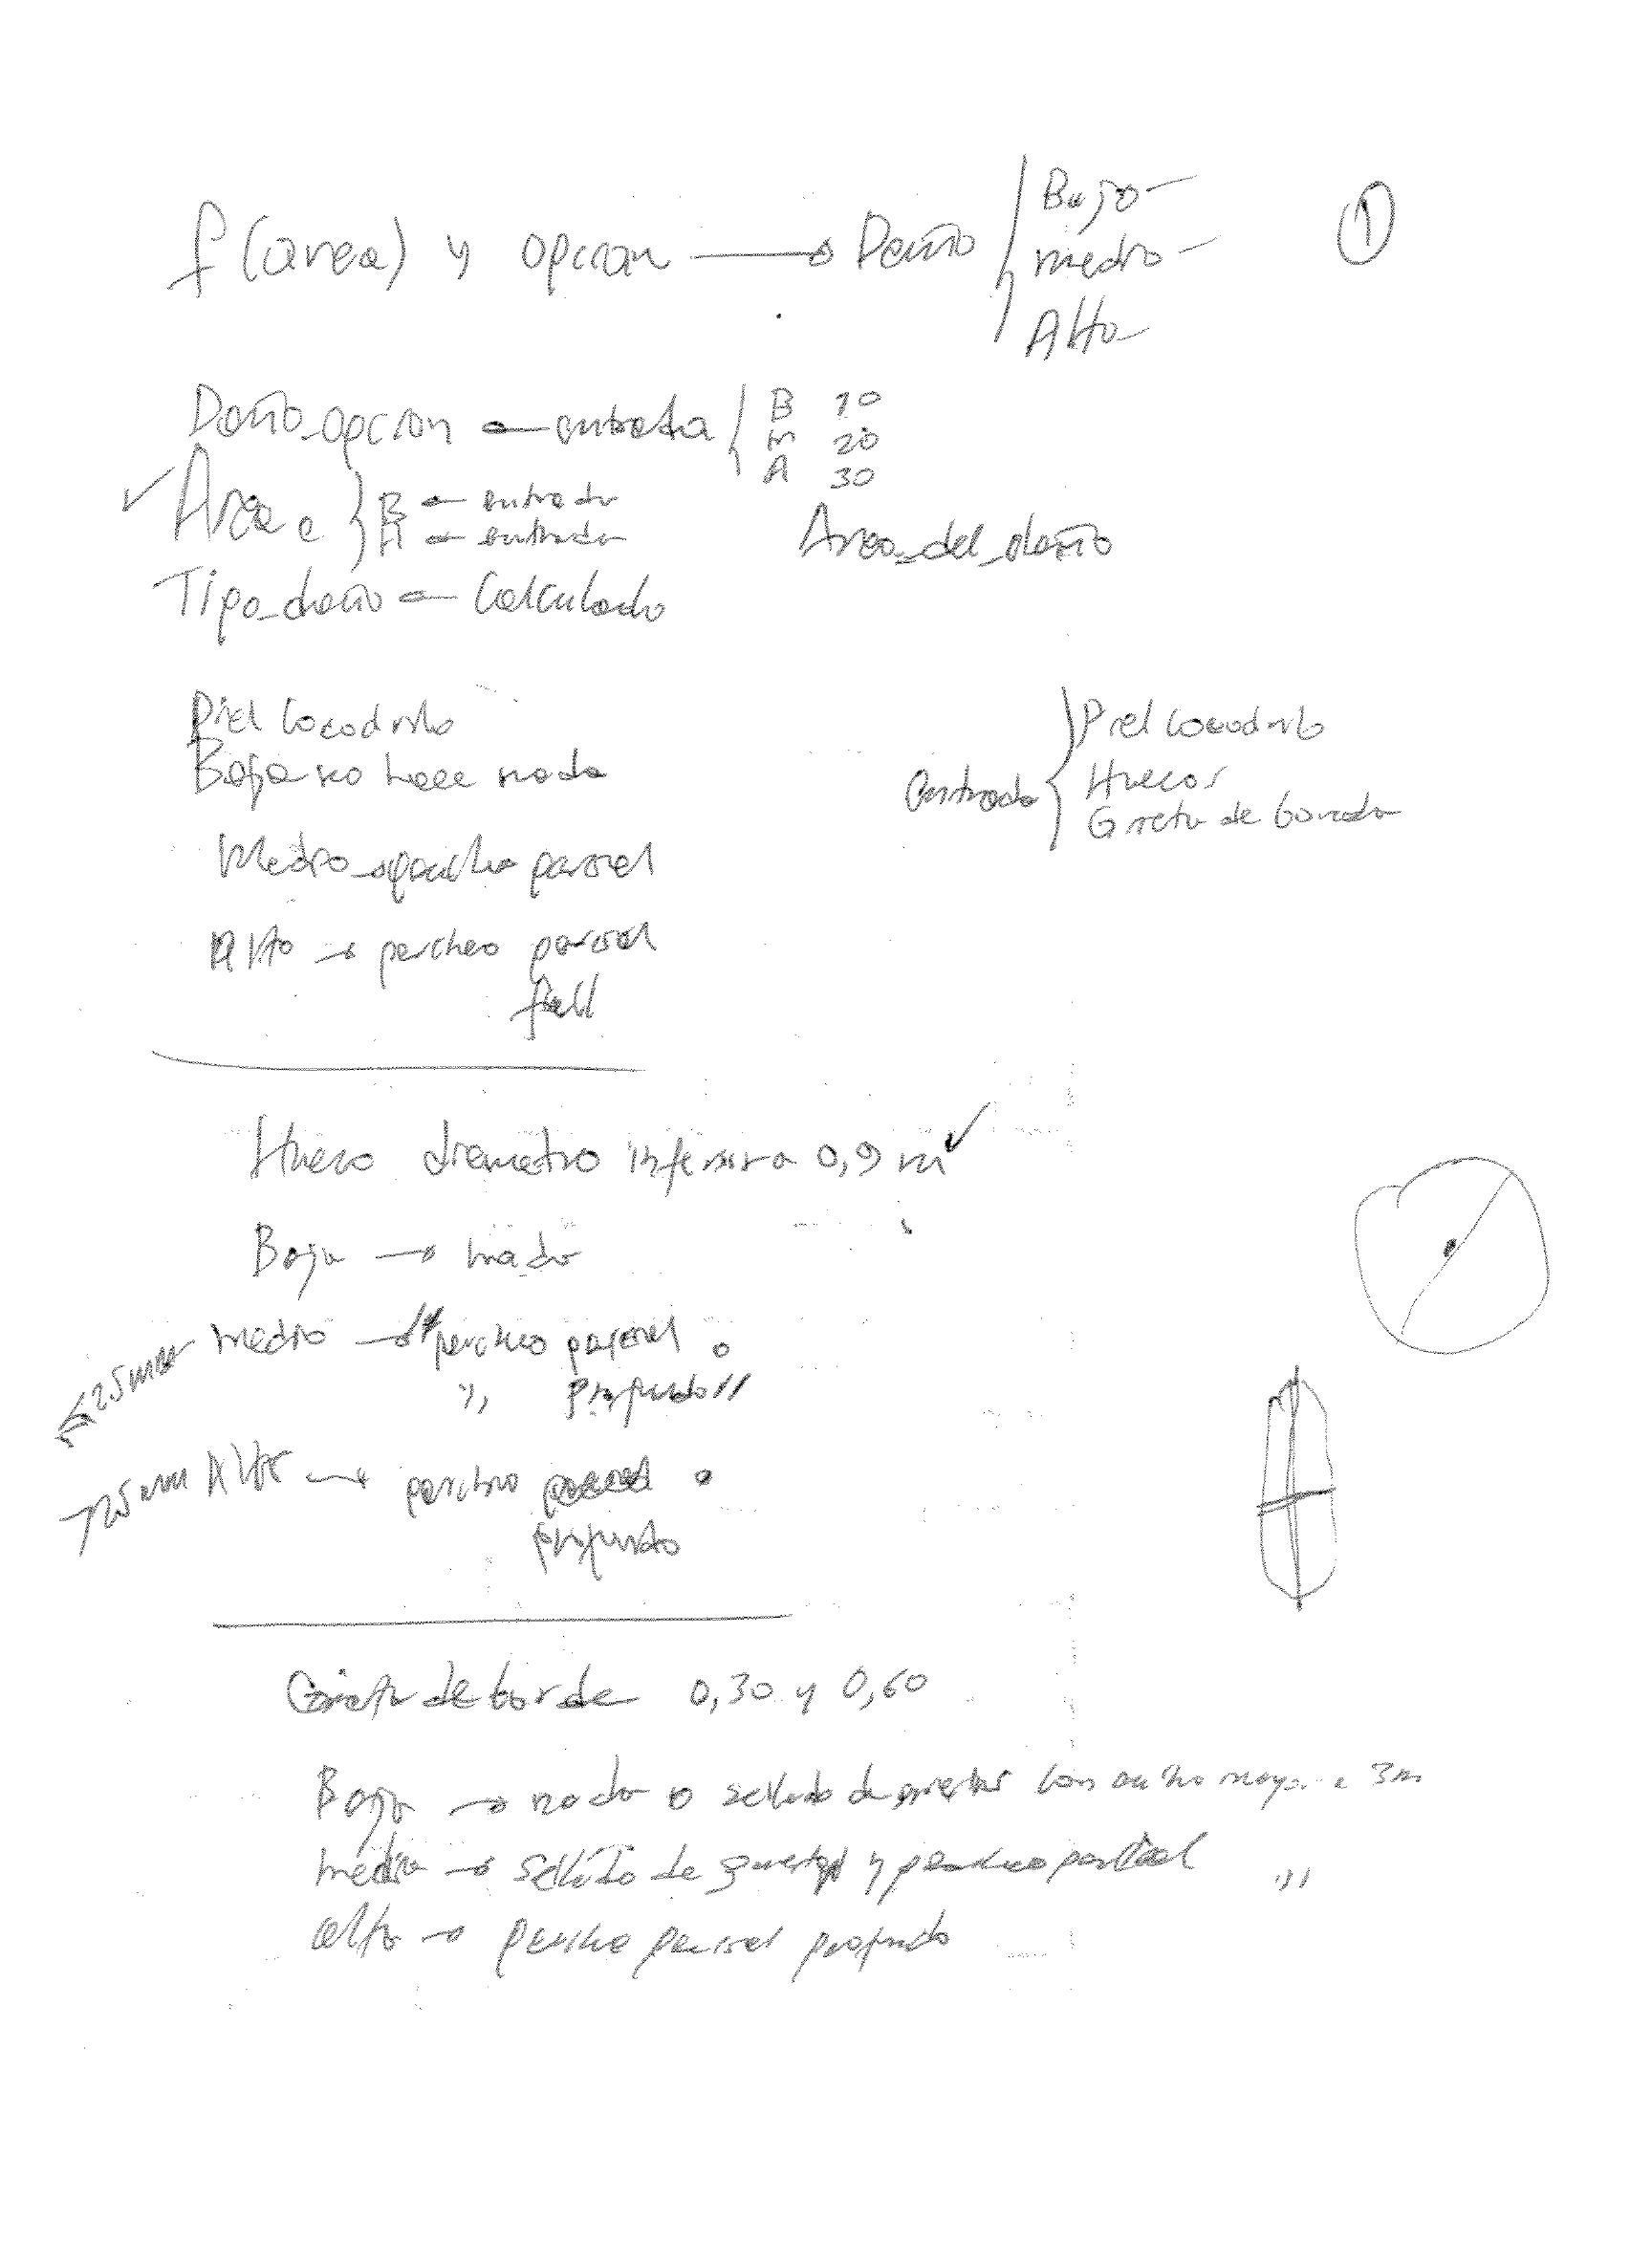 f(area) y opcion → Daño { Bajo
medio
Alto
1
Daño_opcion ← entrada { B 10
M 20
A 30
✓ Area { B ← entrada
H ← entrada
Area_del_daño
Tipo_daño ← Calculado
Piel Cocodrilo
Baja no hace nada
Medio parcheo parcial
Alto → parcheo parcial
full
entrada { Piel Cocodrilo
Huecos
Grieta de borde
Hueco diametro inferior a 0,9 m ✓
Baja → nada
≤ 25 mm medio → parcheo parcial o
" profundo
> 25 mm Alto → parcheo parcial o
profundo
Grieta de borde 0,30 y 0,60
Baja → nada o sellado de grietas con ancho mayor a 3m
media → sellado de grietas y parcheo parcial "
alta → parcheo parcial profundo